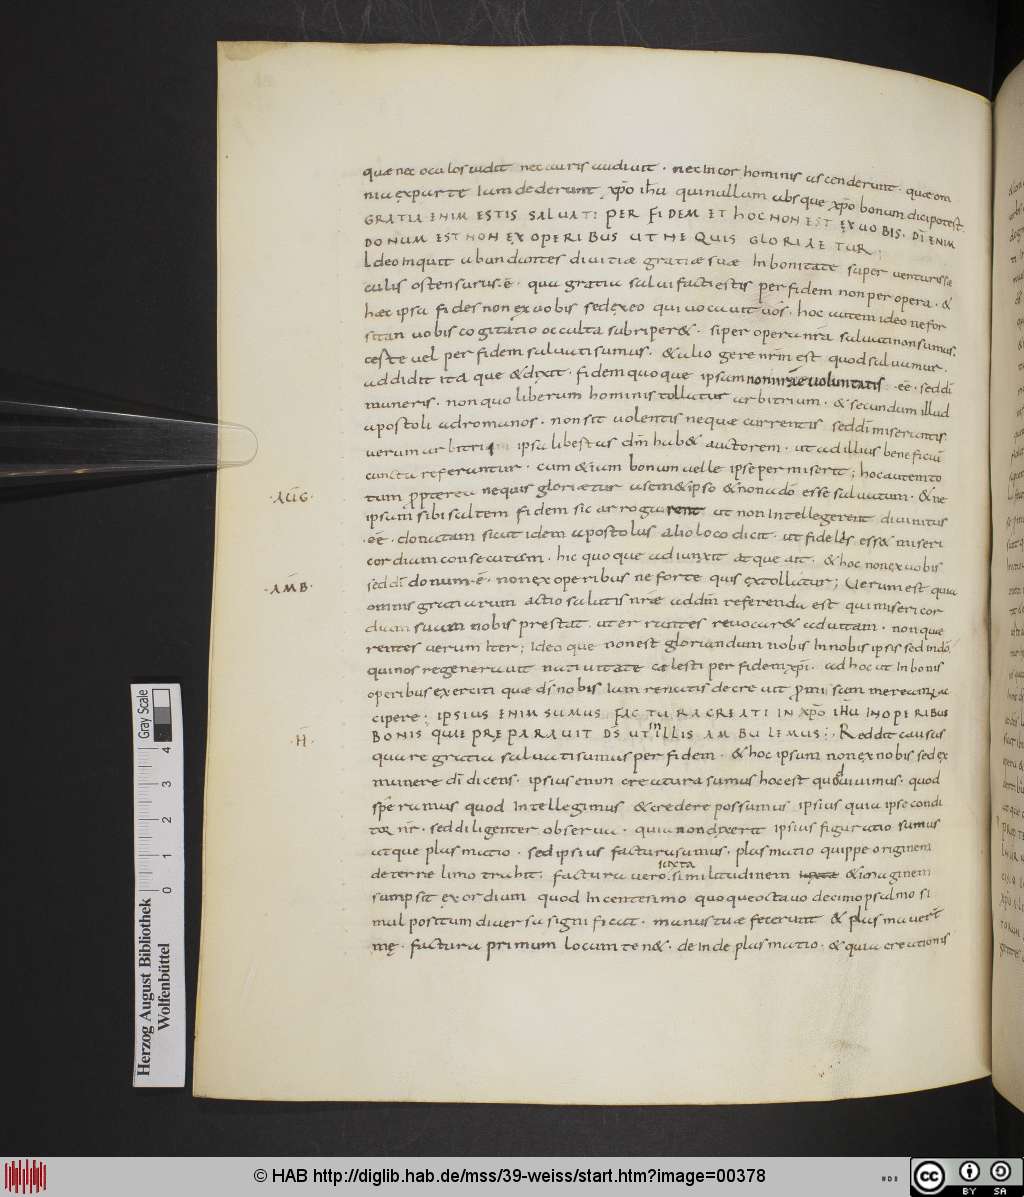 quae nec oculos uidit nec auris audiuit · nec In cor hominis ascenderunt · quae om
nia ex parte Iam dederunt xp̄o ih̄u qui nullum absque xp̄o bonum dici potest.
GRATIA ENIM ESTIS SALUATI PER FIDEM ET HOC NON EST EX UOBIS · DĪ ENIM
DONUM EST NON EX OPERIBUS UT NE QUIS GLORIAETUR;
Ideo Inquit abundantes diuitiae gratiae suae In bonitate super uenturis sae
culis ostensurus·ē· quia gratia salui facti estis per fidem non per opera · &
haec ipsa fides non ex uobis sed ex eo qui uocauit uos · hoc autem ideo ne for
sitan uobis cogitatio occulta subriper& · si per opera nr̄a saluati non sumus.
certe uel per fidem saluati sumus · & alio genere nr̄m est quod saluamur.
addidit itaque & dixit · fidem quoque ipsam non nr̄ae uoluntatis ·ee· sed dī
muneris · non quo liberum hominis tollatur arbitrium · & secundum illud
apostoli ad romanos · non sit uolentis neque currentis sed dī miserantis
uerum arbitrii ipsa libertas dm̄ hab& auctorem · ut ad illius beneficiū
cuncta referantur · cum &iam bonum uelle ipse permiserit; hoc autem to
·AŪG·
tum propterea ne quis gloriaetur a sem&ipso & non a dō esse saluatum · & ne
ipsam sibi saltem fidem sic arrogarent ut non Intellegerent diuinitus
·ee· donatam sicut idem apostolus alio loco dicit · ut fidelis ess& miseri
cordiam consecutum · hic quoque adiunxit atque ait · & hoc non ex uobis
sed dī donum·ē· non ex operibus ne forte quis extollatur; Uerum est quia
·AM̄B·
omnis gratiarum actio salutis nr̄ae ad dm̄ referenda est qui misericor
diam suam nobis prestat ut errantes reuocar& ad uitam · non quae
rentes uerum Iter; Ideoque non est gloriandum nobis In nobis ipsis sed in dō,
qui nos regenerauit natiuitate caelesti per fidem xp̄i · ad hoc ut In bonis
operibus exerciti quae ds̄ nobis Iam renatis decreuit promissam mereamur ac
cipere; IPSIUS ENIM SUMUS FACTURA CREATI IN XP̄O IH̄U IN OPERIBUS
·H̄·
BONIS QUE PREPARAUIT DS̄ UT In ILLIS AMBULEMUS; Reddit causas
quare gratia saluati sumus per fidem · & hoc ipsum non ex nobis sed ex
munere dī dicens · ipsius enim creatura sumus hoc est quod uiuimus · quod
speramus quod Intellegimus & credere possumus ipsius quia ipse condi
tor nr̄ · sed diligenter obserua · quia non dixerit ipsius figuratio sumus
atque plasmatio · sed ipsius factura sumus · plasmatio quippe originem
de terre limo trahit; factura uero iuxta similitudinem iuxta & imaginem
sumpsit exordium quod In centesimo quoque octauo decimo psalmo si
mul positum diuersa significat · manus tuae fecerunt & plasmauert
me · factura primum locum ten& · deInde plasmatio · & quia creationis
Herzog August Bibliothek
Wolfenbüttel
0 1 2 3 4
Gray Scale
© HAB http://diglib.hab.de/mss/39-weiss/start.htm?image=00378
cc BY SA